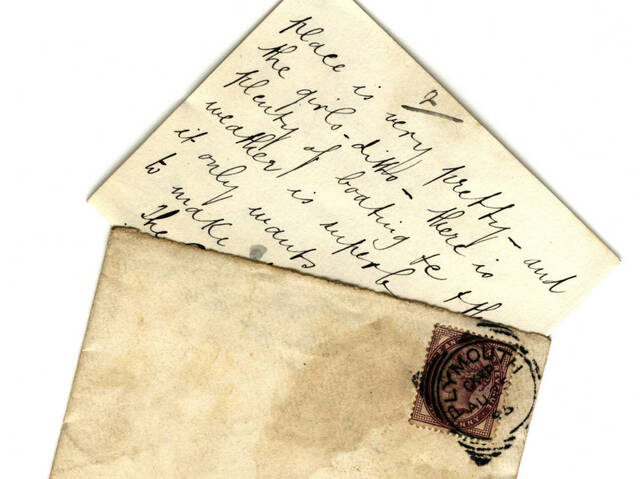 2
place is very pretty - and
the girls - ditto - there is
plenty of boating &c
weather is superb & th
it only wants
to make
The
PLYMOUTH
AU